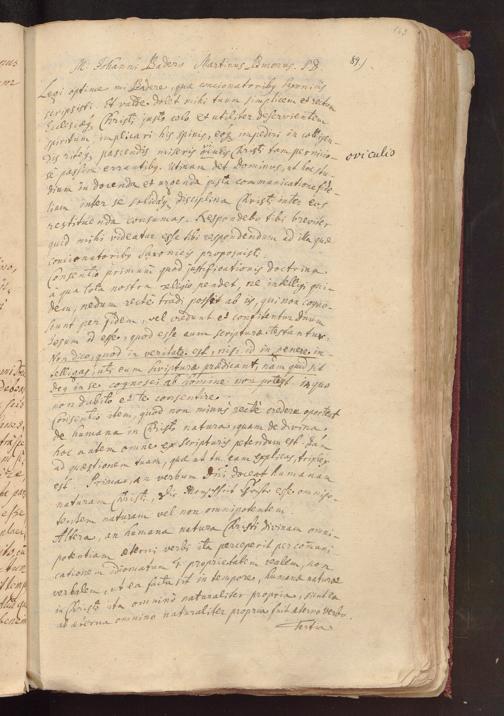 M. Johanni Badero Martinus Bucerus. S.D.
89)
Legi optime mi Badere, quae concionatoribus Saxonicis
scripsisti. Et valde dolet mihi tuum simplicem et rectum
Ecclesiaeque Christi justo colo et utiliter deservientem
spiritum, implicari his spinis, eoque impediri in colligen-
dis riteque pascendis miseris ovibus Christi tam pernicio-
oviculis
se passim errantibus. Utinam det Dominus, ut hoc stu-
dium in docenda et urgenda justa communicatione fide-
lium inter se solidaque disciplina Christi inter eos
restituenda consumas. Respondebo tibi breviter
quid mihi videatur esse tibi respondendum ad illa quae
concionatoribus Saxonicis proposuisti.
Consentio primum quod justificationis doctrina
a qua tota nostra religio pendet, ne intelligi qui-
dem, nedum recte tradi possit ab iis, qui non cogno-
scunt per fidem, vel credunt et confitentur Dnum
Jesum id esse, quod esse eum scriptura testantur.
Non dico, quod in veritate est, nisi id in genere in-
telligas, uti eum scriptura praedicant, nam quid sit
deus in se cognosci ab homine non potest, in quo
non dubito et te consentire.
Consentio item, quod non minus recte credere oporteat
de humana in Christo natura, quam de divina.
hoc autem omne ex scripturis petendum est. Jam
ad quaestionem tuam, quae ut tu eam explicas, triplex
est. Prima, an verbum Dni doceat humanam
naturam Christi, esse omnipo-
tentem naturam vel non omnipotentem.
Altera, an humana natura Christi divinam omni-
potentiam aeterni verbi ita perceperit per communi-
cationem idiomatum et proprietatem realem, non
verbalem, ut ea facta sit in tempore, humanae naturae
in Christo ita omnino naturaliter propria, sicut ea
ab aeterno omnino naturaliter propria fuit aeterno verbo.
Tertia